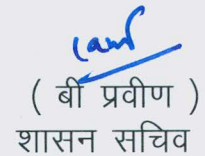 ( बी प्रवीण )
शासन सचिव